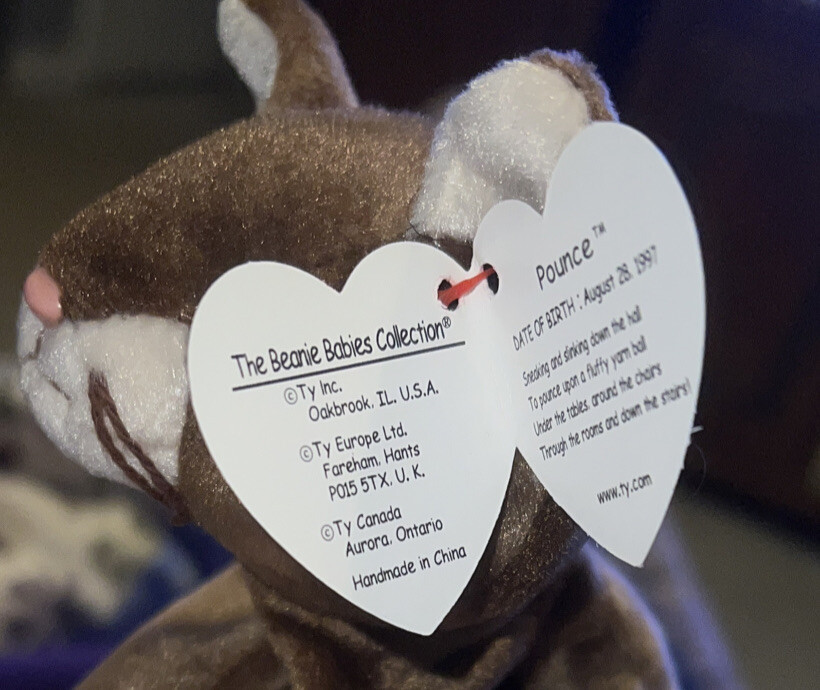 The Beanie Babies Collection®
©Ty Inc.
Oakbrook, IL, U.S.A.
©Ty Europe Ltd.
Fareham, Hants
PO15 5TX, U. K.
©Ty Canada
Aurora, Ontario
Handmade in China
Pounce™
DATE OF BIRTH : August 28, 1997
Sneaking and slinking down the hall
To pounce upon a fluffy yarn ball
Under the tables, around the chairs
Through the rooms and down the stairs!
www.ty.com